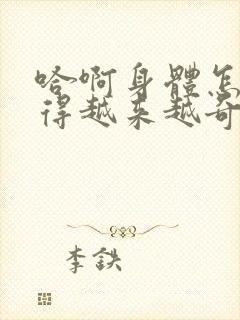 哈啊身體怎
得越来越奇
李鉄